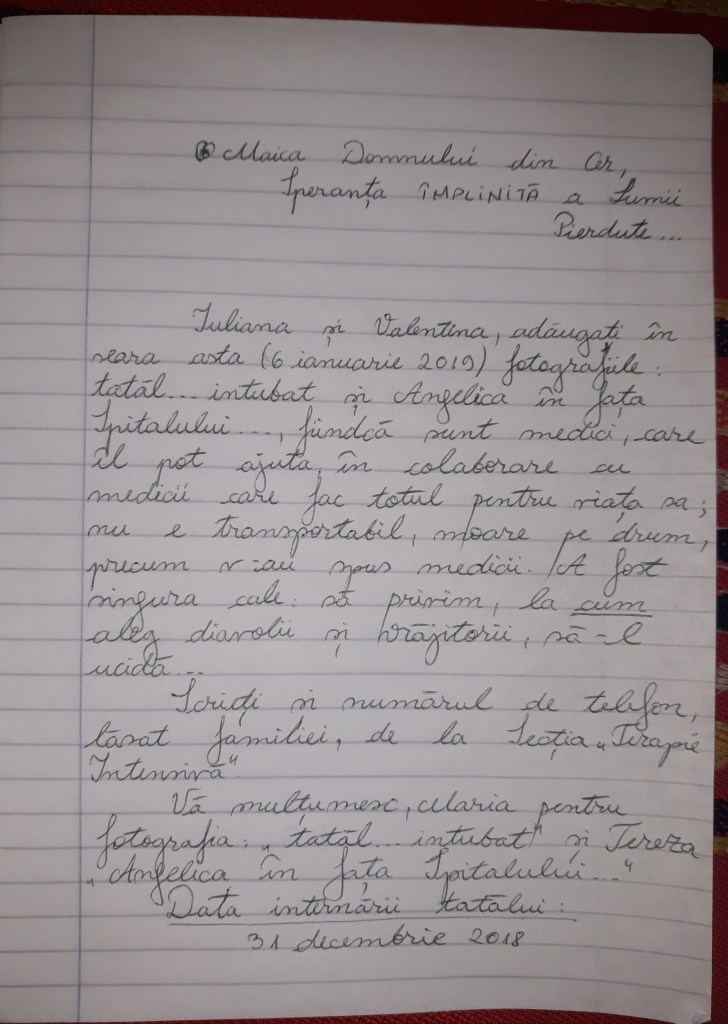 Maica Domnului din Cer,
Speranța ÎMPLINITĂ a Lumii
Pierdute...
Iuliana și Valentina, adăugați în
seara asta (6 ianuarie 2019) fotografiile:
tatăl... intubat și Angelica în fața
Spitalului..., fiindcă sunt medici, care
îl pot ajuta, în colaborare cu
medicii care fac totul pentru viața sa;
nu e transportabil, moare pe drum,
precum v-au spus medicii. A fost
singura cale: să privim, la cum
aleg diavolii și vrăjitorii, să-l
ucidă...
Scrieți și numărul de telefon,
lăsat familiei, de la Secția „Terapie
Intensivă"
Vă mulțumesc, Maria pentru
fotografia: „tatăl... intubat" și Tereza
„Angelica în fața Spitalului..."
Data internării tatălui:
31 decembrie 2018